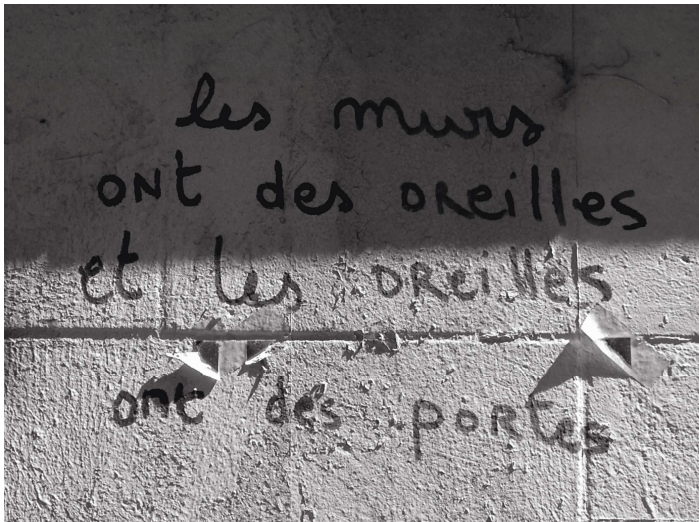 les murs
ont des oreilles
et les oreilles
ont des portes